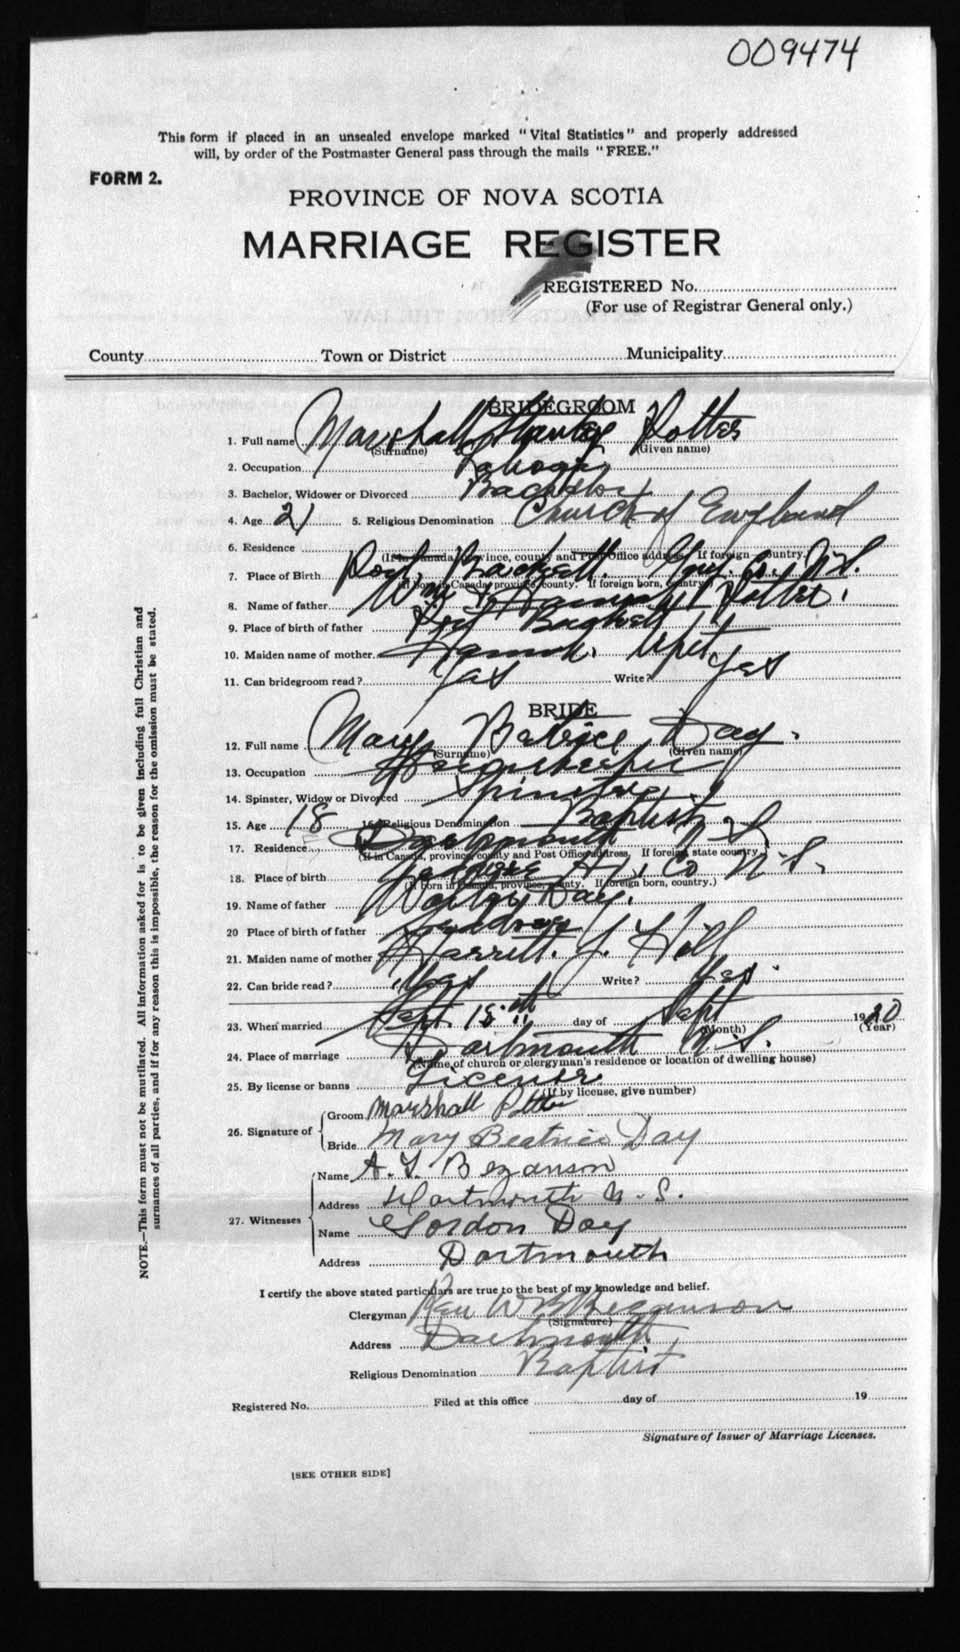 009474
This form if placed in an unsealed envelope marked "Vital Statistics" and properly addressed
will, by order of the Postmaster General pass through the mails "FREE."
FORM 2.
PROVINCE OF NOVA SCOTIA
MARRIAGE REGISTER
REGISTERED No.
(For use of Registrar General only.)
County Town or District Municipality
BRIDEGROOM
1. Full name Marshall Stanley Potter
(Surname) (Given name)
2. Occupation
3. Bachelor, Widower or Divorced Bachelor
4. Age 21 5. Religious Denomination Church of England
6. Residence
(If in Canada, province, county and Post Office address. If foreign country.)
7. Place of Birth Port N.S.
(If born in Canada, province, county. If foreign born, country.)
8. Name of father Wm Potter.
9. Place of birth of father Port
10. Maiden name of mother
11. Can bridegroom read? yas Write? yes
BRIDE
12. Full name Mary Day.
(Surname) (Given name)
13. Occupation
14. Spinster, Widow or Divorced Spinster
15. Age 18 16. Religious Denomination Baptist
17. Residence Dartmouth N S
(If in Canada, province, county and Post Office address. If foreign state country.)
18. Place of birth Co N.S.
(If born in Canada, province, county. If foreign born, country.)
19. Name of father Day.
20 Place of birth of father
21. Maiden name of mother Harrett. J. Hill
22. Can bride read? yas Write? Yes.
23. When married Sept. 15th day of Sept 1920
(Month) (Year)
24. Place of marriage Dartmouth N.S.
(Name of church or clergyman's residence or location of dwelling house)
25. By license or banns License
(If by license, give number)
26. Signature of Groom Marshall Potter
Bride Mary Beatrice Day
27. Witnesses Name A. L. Bezanson
Address Dartmouth N.S.
Name Gordon Day
Address Dartmouth
I certify the above stated particulars are true to the best of my knowledge and belief.
Clergyman Rev W B Bezanson
(Signature)
Address Dartmouth
Religious Denomination Baptist
Registered No. Filed at this office day of 19
Signature of Issuer of Marriage Licenses.
[SEE OTHER SIDE]
NOTE.—This form must not be mutilated. All information asked for is to be given including full Christian and
surnames of all parties, and if for any reason this is impossible, the reason for the omission must be stated.